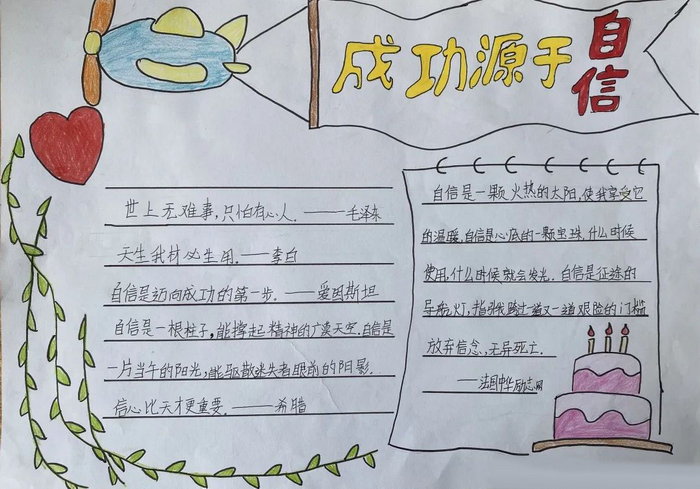 成功源于自信
世上无难事,只怕有心人.——毛泽东
天生我材必生用.——李白
自信是迈向成功的第一步.——爱因斯坦
自信是一根柱子,能撑起精神的广漠天空.自信是
一片当午的阳光,能驱散迷失者眼前的阴影.
信心比天才更重要.——希腊
自信是一颗火热的太阳,使我享受它
的温暖.自信是心底的一颗宝珠.什么时候
使用.什么时候就会发光.自信是征途的
导航灯.指引我跨过一道又一道艰险的门槛
放弃信念,无异死亡.
——法国中华励志网